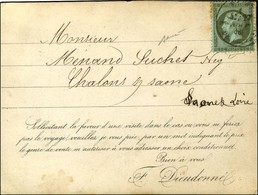 Monsieur
Minand Suchet Neg
Chalons s/ saone
Saone et Loire
Sollicitant la faveur d'une visite dans le cas où vous ne feriez
pas le voyage, veuillez je vous prie par un mot indiquant le prix
le genre de vente m'autoriser à vous adresser un choix conditionnel.
Bien à vous
F. Dieudonné